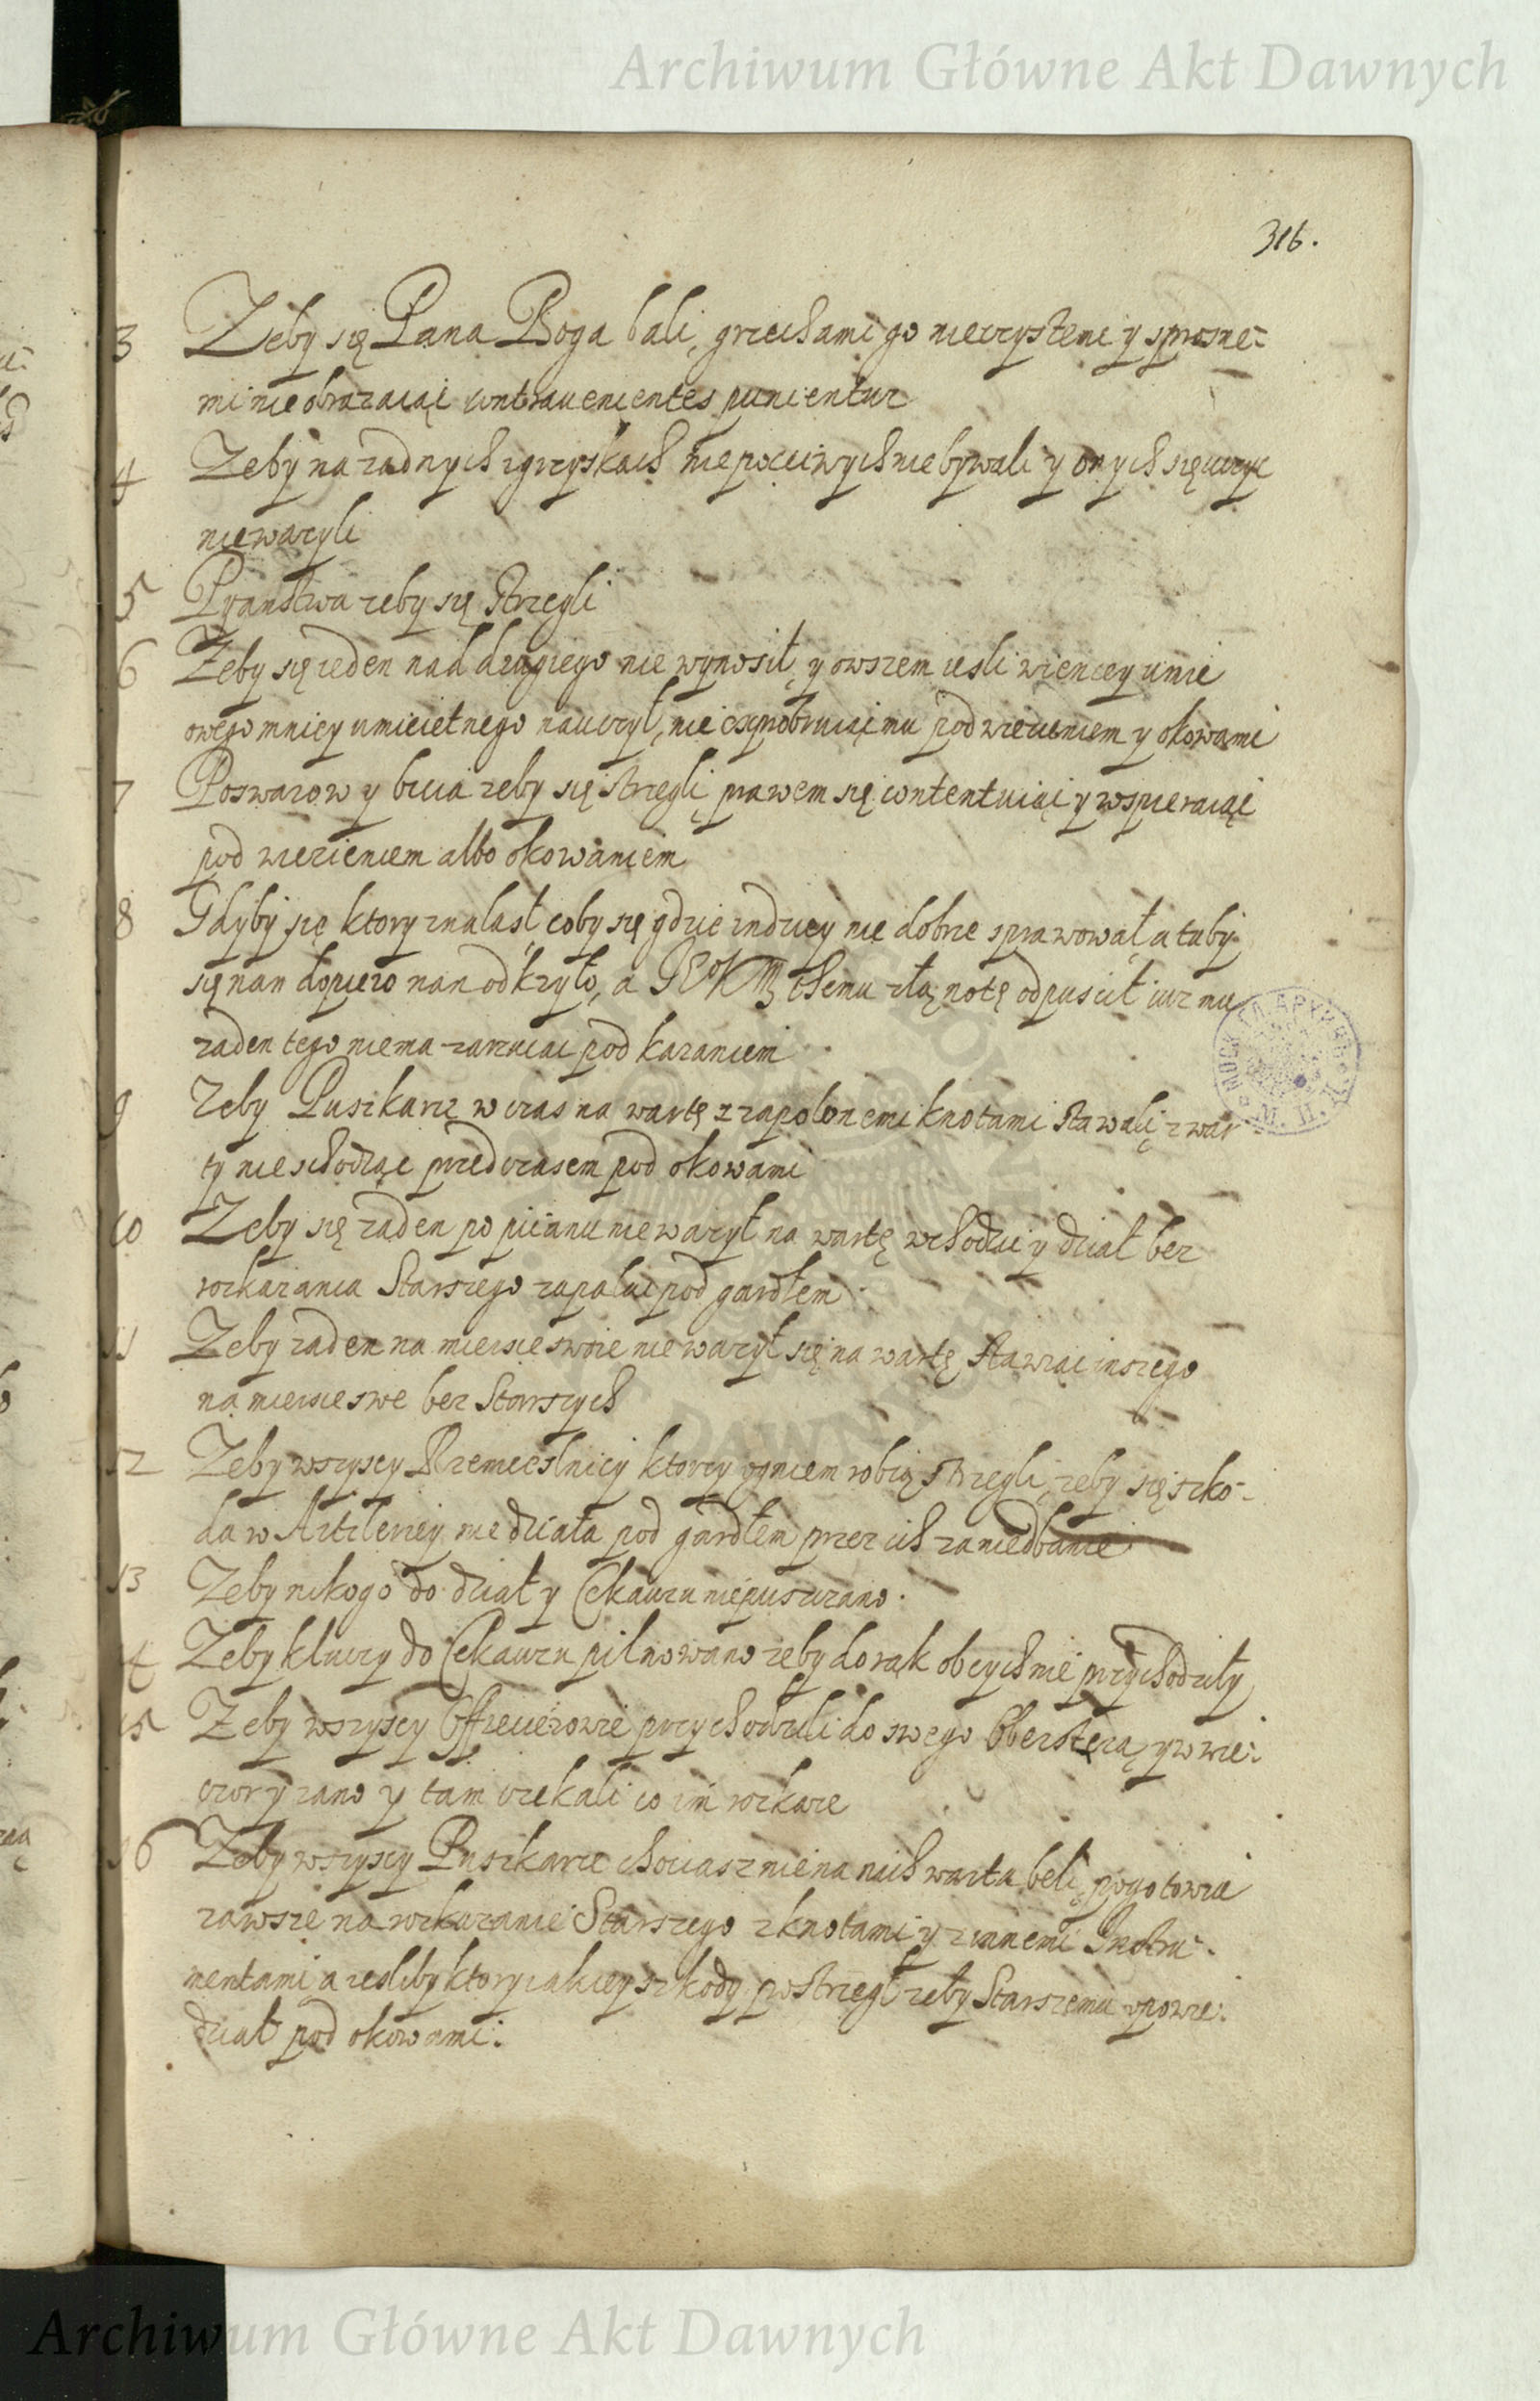 Archiwum Główne Akt Dawnych
316.
3 Zeby się Pana Boga bali, grzechami go nieczystemi y sprosne=
mi nie obrazaiąi contrauenientes punientur
4 Zeby na zadnych zgrzyskach niepoczciwych nie bywali y onych się uczyc
nie wazyli
5 Pyanstwa zeby się strzegli
6 Zeby się ieden nad drugiego nie wynosił, y owszem iesli wiencey umie
owego mniey umieietnego nauczył, nie exprobruiąi mu pod wiezieniem y okowami
7 Poswarow y bicia zeby się strzegli prawem się contentuiąi y wspieraiąi
pod wiezieniem albo okowaniem
8 Gdyby się ktory znalasł coby się gdzie indziey nie dobrze sprawował a tuby
się nan dopiero nan odkryło, a JEo KM themu złą notę odpuscił iuz mu
zaden tego niema zarzuiac pod karaniem
9 Zeby Puszkarze w czas na wartę z zapalonemi knotami stawali, z war
ty nie schodząc przed czasem pod okowami
10 Zeby się zaden po pijanu nie wazył na wartę wchodzić y dział bez
rozkazania Starszego zapalac pod gardłem
11 Zeby zaden na mieisce swoie nie wazył się na wartę stawiac inszego
na mieisce swe bez Starszych
12 Zeby wszyscy Rzemieslnicy ktorzy ogniem robią strzegli, zeby się szko-
da w Artileriey nie działa pod gardłem przez ich zaniedbanie
13 Zeby nikogo do dział y Cekauzu niepuszczano.
14 Zeby kluczy do Cekauzu pilnowano zeby do rąk obcych nie przychodziły
15 Zeby wszyscy Officierowie przychodzili do swego Oberstera, y w wie=
czor y rano y tam czekali co im rozkaze
16 Zeby wszyscy Puszkarze chociasz nie na nich warta beli, pogotowia
zawsze na rozkazanie Starszego z knotami y z innemi Instru=
mentami a iesliby ktory iakiey szkody postrzegł zeby Starszemu opowie=
dział pod okowami:
Archiwum Główne Akt Dawnych